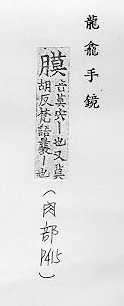 龍龕手鏡
膜
音莫宍丨也又莫
胡反梵語曩丨也
（肉部 P415）